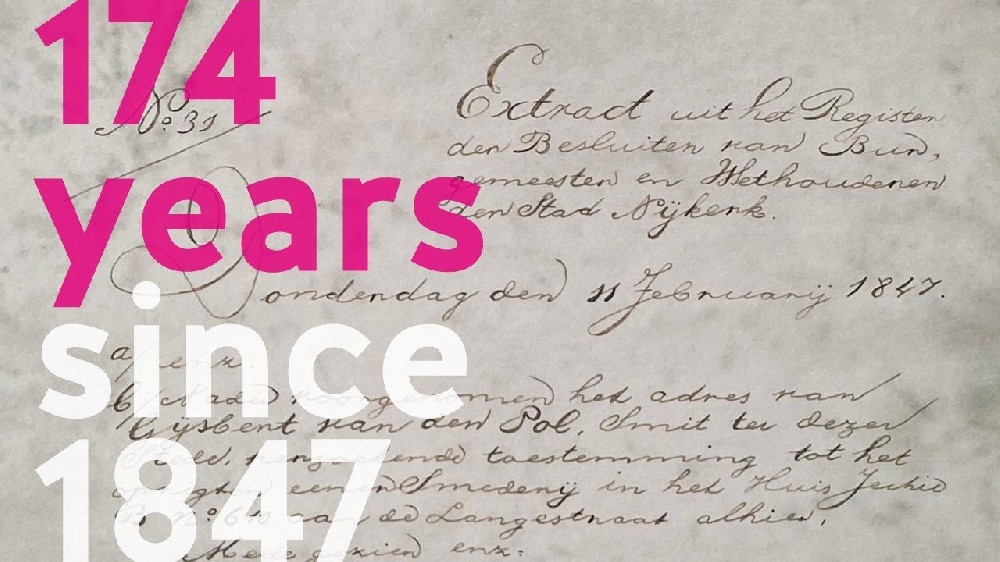 174
years
since
1847
No. 31
Extract uit het Register
der Besluiten van Bur,
gemeesten en Wethouderen
der Stad Nijkerk.
Donderdag den 11 Februarij 1847.
a/ enz:
b/ Nader voorgenomen het adres van
Gijsbert van den Pol, Smit te dezer
Stede, verzoekende toestemming tot het
oprigten eener Smederij in het Huis Sectie
B No. 610 aan de Langestraat alhier.
Mede gezien enz: